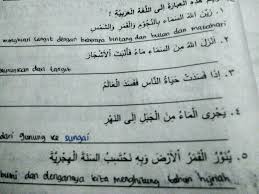 هذه العبارة إلى اللغة العربية !
زين الله السماء بالنجوم والقمر والشمس
menghiasi langit dengan bintang dan bulan dan matahari
٢. أنزل الله من السماء ماء فأنبت الأشجار
dari langit
٣. إذا فسدت حياة الناس ففسد العالم
٤. يجرى الماء من الجبل إلى النهر
dari gunung ke sungai
٥. ينور القمر الأرض وبه نحتسب السنة الهجرية
bumi dan dengannya kita menghitung tahun hijriah